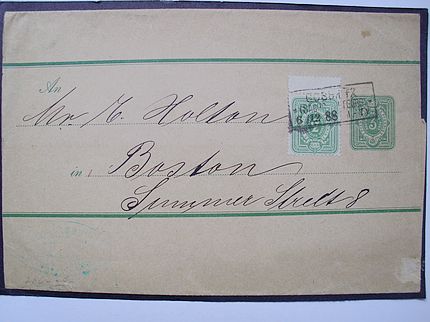 An
Mr E Holton
6/12 88
3
in Boston
Summer Street 8